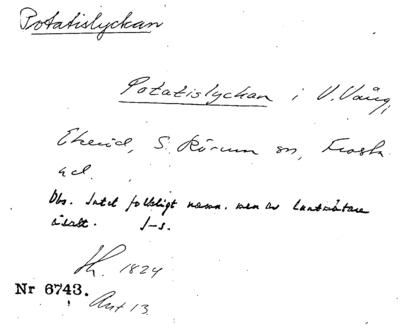 Potatislyckan
Potatislyckan i V. Vång,
Ekeröd, S. Rörum sn, Frosta
hd.
Obs. Intet folkligt namn, men av lantmätare
åsatt. J-s.
Sk. 1824
Nr 6743.
Akt 13.